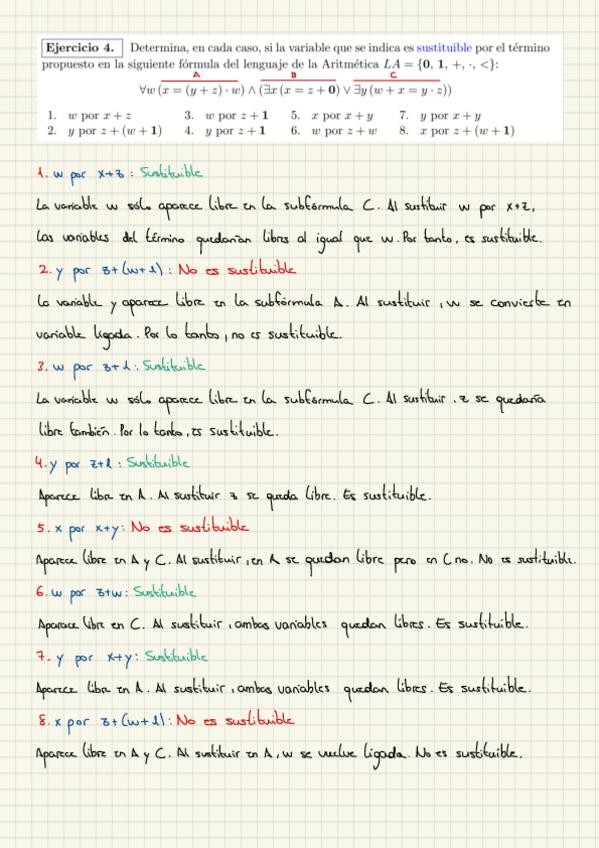 Ejercicio 4. Determina, en cada caso, si la variable que se indica es sustituible por el término
propuesto en la siguiente fórmula del lenguaje de la Aritmética LA = {0, 1, +, ·, <}:
A B C
∀w (x = (y + z) · w) ∧ (∃x (x = z + 0) ∨ ∃y (w + x = y · z))
1. w por x + z 3. w por z + 1 5. x por x + y 7. y por x + y
2. y por z + (w + 1) 4. y por z + 1 6. w por z + w 8. x por z + (w + 1)
1. w por x+z : Sustituible
La variable w sólo aparece libre en la subfórmula C. Al sustituir w por x+z,
las variables del término quedarían libres al igual que w. Por tanto, es sustituible.
2. y por z+(w+1) : No es sustituible
La variable y aparece libre en la subfórmula A. Al sustituir, w se convierte en
variable ligada. Por lo tanto, no es sustituible.
3. w por z+1 : Sustituible
La variable w sólo aparece libre en la subfórmula C. Al sustituir, z se quedaría
libre también. Por lo tanto, es sustituible.
4. y por z+1 : Sustituible
Aparece libre en A. Al sustituir z se queda libre. Es sustituible.
5. x por x+y : No es sustituible
Aparece libre en A y C. Al sustituir, en A se quedan libre pero en C no. No es sustituible.
6. w por z+w : Sustituible
Aparace libre en C. Al sustituir, ambas variables quedan libres. Es sustituible.
7. y por x+y : Sustituible
Aparece libre en A. Al sustituir, ambas variables quedan libres. Es sustituible.
8. x por z+(w+1) : No es sustituible
Aparece libre en A y C. Al sustituir en A, w se vuelve ligada. No es sustituible.